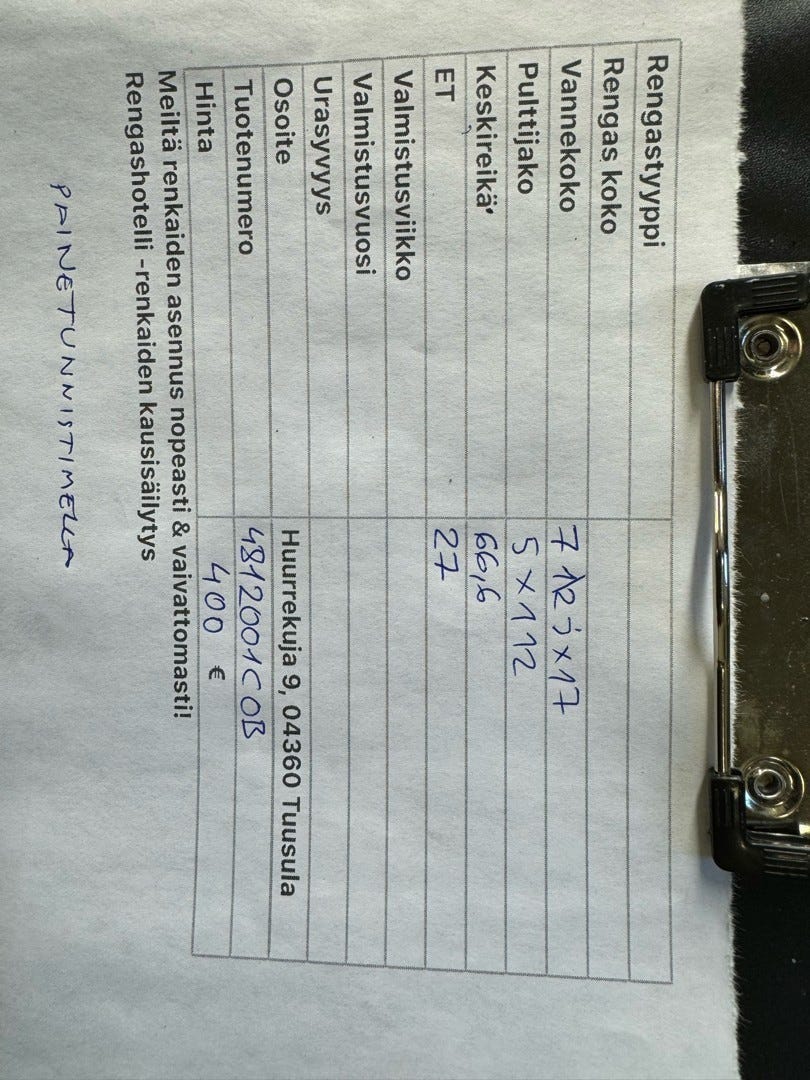 Rengastyyppi
Rengas koko
Vannekoko 7 ½ j x 17
Pulttijako 5 x 112
Keskireikä 66,6
ET 27
Valmistusviikko
Valmistusvuosi
Urasyvyys
Osoite Huurrekuja 9, 04360 Tuusula
Tuotenumero 4812001COB
Hinta 400 €
Meiltä renkaiden asennus nopeasti & vaivattomasti!
Rengashotelli -renkaiden kausisäilytys
PAINETUNNISTIMELLA